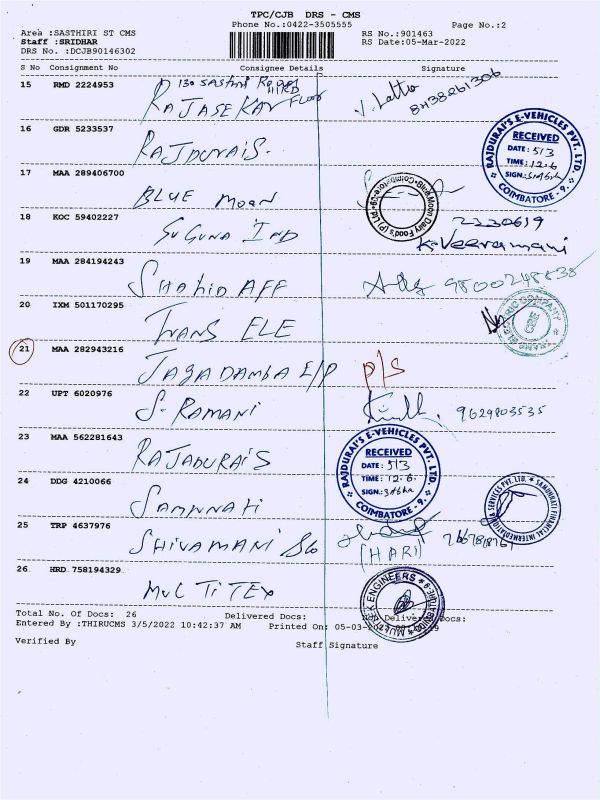 TPC/CJB DRS - CMS
Phone No.:0422-3505555
Page No.:2
Area :SASTHIRI ST CMS
RS No.:901463
Staff :SRIDHAR
RS Date:05-Mar-2022
DRS No. :DCJB90146302
S No Consignment No Consignee Details Signature
15 RMD 2224953
RAJASEKAR FLOOR
16 GDR 5233537
RAJDURAIS.
RAJDURAI'S E-VEHICLES PVT. LTD.
RECEIVED
DATE: 5/3
TIME: 12.6
SIGN.:
COIMBATORE - 9.
17 MAA 289406700
BLUE MOON
Blue Moon Dairy Food's (P) Ltd. Coimbatore-09
18 KOC 59402227
SUGUNA IND
2230619
K. Veeramani
19 MAA 284194243
SHAHID AFF
9800248835
20 IXM 501170295
TRANS ELE
21 MAA 282943216
JAGADAMBA E/P P/S
22 UPT 6020976
S. RAMANI
9629803535
23 MAA 562281643
RAJADURAI'S
RAJDURAI'S E-VEHICLES PVT. LTD.
RECEIVED
DATE: 5/3
TIME: 12.6.
SIGN.:
COIMBATORE - 9.
24 DDG 4210066
SAMUNNATI FINANCIAL INTERMEDIATION & SERVICES PVT. LTD.
25 TRP 4637976
SHIVAMANI
(HARI)
26 HRD 758194329
MULTITEX
MULTITEK ENGINEERS
Total No. Of Docs: 26 Delivered Docs: Non Delivered Docs:
Entered By :THIRUCMS 3/5/2022 10:42:37 AM Printed On: 05-03-
Verified By
Staff Signature